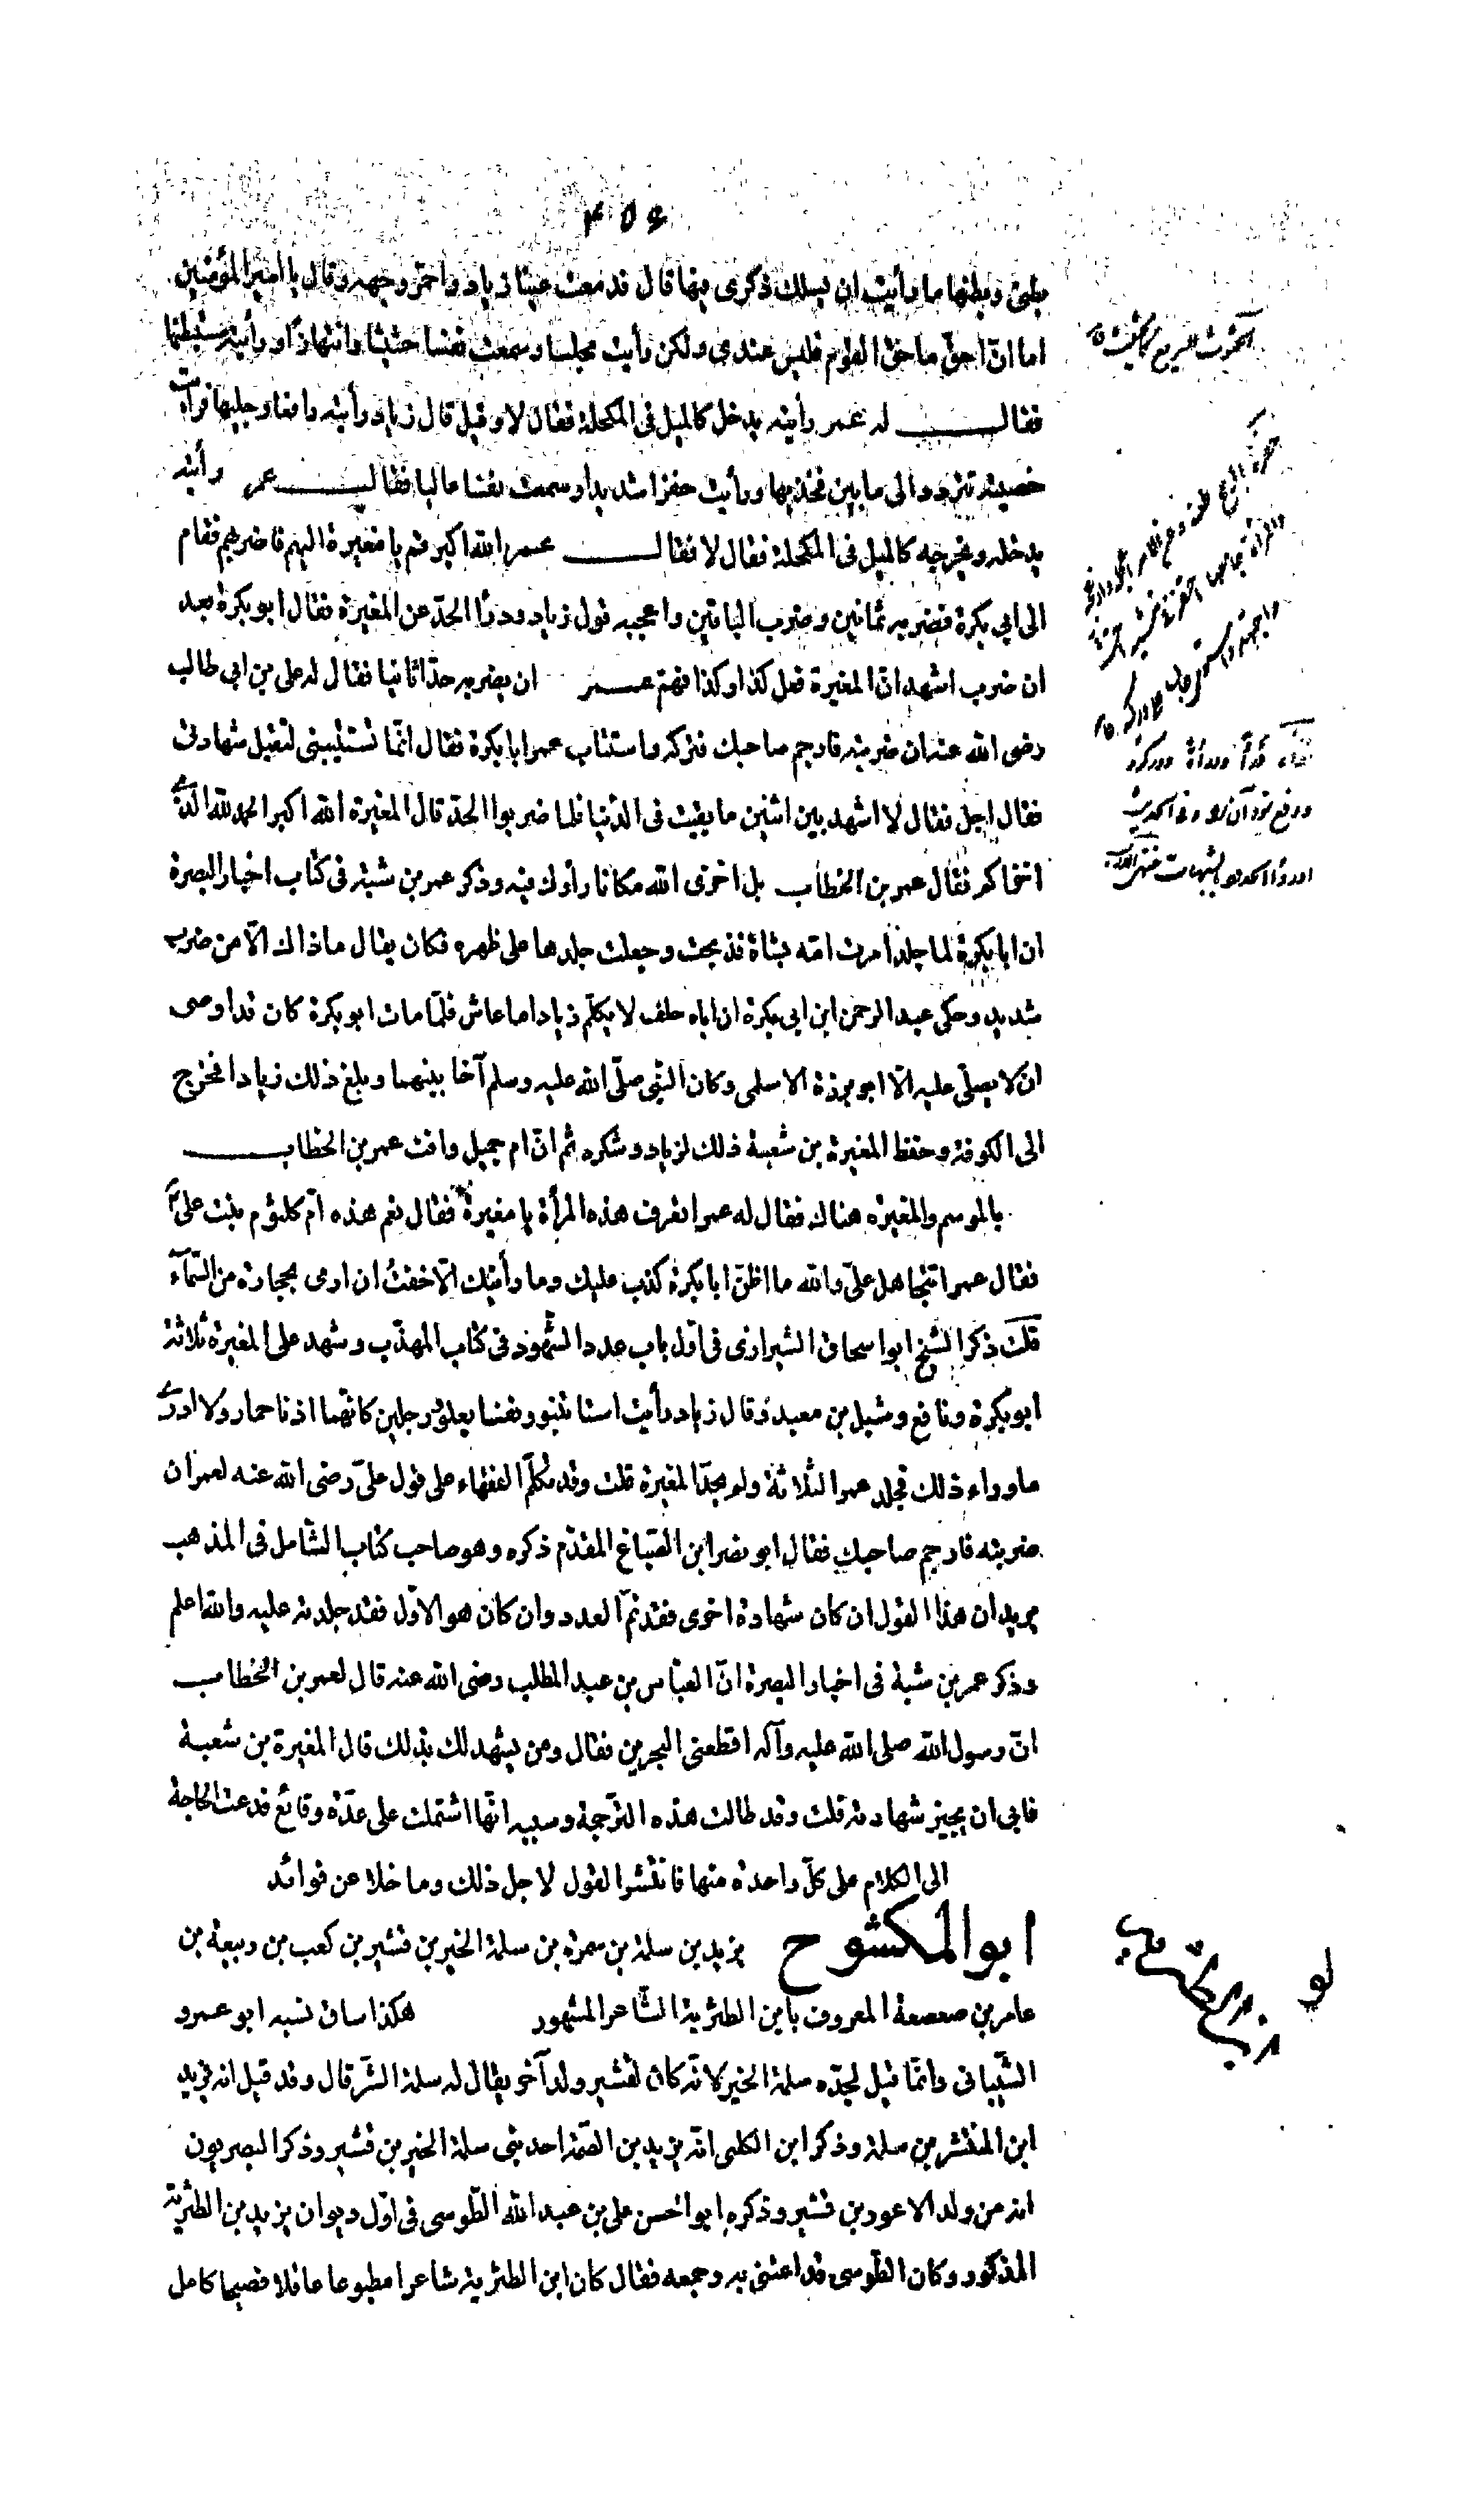 ٤٥٦
بطنی وبطنها ما رأيت ان يسلك ذكرى فيها قال فدمعت عينا زياد واحمر وجهه وقال يا امير المؤمنين
اما انّ احقّ ما حقّ القوم فليس عندى ولكن رأيت مجلسا وسمعت نفسا حثيثا وانتهازا ورأيته مستبطنها
فقال له عمر رأيته يدخل كالميل فى المكحلة فقال لا وقيل قال زياد رأيته رافعا رجليها فرأيت
خصيته تتردد الى ما بين فخذيها ورأيت حفزا شديدا وسمعت نفسا عاليا فقال عمر رأيته
يدخله ويخرجه كالميل فى المكحلة فقال لا فقال عمر الله اكبر قم يا مغيرة اليهم فاضربهم فقام
الى ابى بكرة فضربه ثمانين وضرب الباقين واعجبه قول زياد ودرأ الحدّ عن المغيرة فقال ابو بكرة بعد
ان ضرب اشهد انّ المغيرة فعل كذا وكذا فهمّ عمر ان يضربه حدّا ثانيا فقال له على بن ابى طالب
رضى الله عنه ان ضربته فارجم صاحبك فتركه واستتاب عمر ابا بكرة فقال انّما تستتيبنى لتقبل شهادتى
فقال اجل فقال لا اشهد بين اثنين ما بقيت فى الدّنيا فلما ضربوا الحدّ قال المغيرة الله اكبر الحمد لله الّذى
اخزاكم فقال عمر بن الخطاب بل اخزى الله مكانا رأوك فيه وذكر عمر بن شبّة فى كتاب اخبار البصرة
ان ابا بكرة لما جلد امرت امّه بشاة فذبحت وجعلت جلدها على ظهره فكان يقال ما ذاك الّا من ضرب
شديد وحكى عبد الرحمن ابن ابى بكرة ان اباه حلف لا يكلّم زيادا ما عاش فلمّا مات ابو بكرة كان قد اوصى
ان لا يصلّى عليه الّا ابو برزة الاسلمى وكان النّبى صلّى الله عليه وسلم آخا بينهما وبلغ ذلك زيادا فخرج
الى الكوفة وحفظ المغيرة بن شعبة ذلك لزياد وشكره ثم انّ ام جميل وافت عمر بن الخطاب
بالموسم والمغيرة هناك فقال له عمر اتعرف هذه المرأة يا مغيرة فقال نعم هذه امّ كلثوم بنت علىّ
فقال عمر اتتجاهل علىّ والله ما اظنّ ابا بكرة كذب عليك وما رأيتك الّا خفتُ ان ارمى بحجارة من السّمآء
قلت ذكر الشّيخ ابو اسحاق الشيرازى فى اوّل باب عدد الشّهود فى كتاب المهذّب وشهد على المغيرة ثلاثة
ابو بكرة ونافع وشبل بن معبد وقال زياد رأيت استا تنبو ونفسا يعلو ورجلين كانّهما اذنا حمار ولا ادرى
ما وراء ذلك فجلد عمر الثّلاثة ولم يحدّ المغيرة قلت وقد تكلّم الفقهاء على قول علىّ رضى الله عنه لعمر ان
ضربته فارجم صاحبك فقال ابو نصر ابن الصّبّاغ المقدّم ذكره وهو صاحب كتاب الشّامل فى المذهب
يريد ان هذا القول ان كان شهادة اخرى فقد تمّ العدد وان كان هو الاوّل فقد جلدته عليه والله اعلم
وذكر عمر بن شبة فى اخبار البصرة انّ العبّاس بن عبد المطلب رضى الله عنه قال لعمر بن الخطاب
انّ رسول الله صلى الله عليه وآله اقطعنى البحرين فقال ومن يشهد لك بذلك قال المغيرة بن شعبة
فابى ان يجيز شهادته قلت وقد طالت هذه التّرجمة وسببه انّها اشتملت على عدّة وقائع فدعت الحاجة
الى الكلام على كلّ واحدة منها فانتشر القول لاجل ذلك وما خلا عن فوائد
ابو المكشوح يزيد بن سلمة بن سمرة بن سلمة الخير بن قشير بن كعب بن ربيعة بن
عامر بن صعصعة المعروف بابن الطثرية الشّاعر المشهور هكذا ساق نسبه ابو عمرو
الشّيبانى وانّما قيل لجدّه سلمة الخير لانّه كان لقشير ولد آخر يقال له سلمة الشّر قال وقد قيل انه يزيد
ابن المنتشر بن سلمة وذكر ابن الكلبى انّه يزيد بن الصّمّة احد بنى سلمة الخير بن قشير وذكر البصريون
انه من ولد الاعور بن قشير وذكره ابو الحسن على بن عبد الله الطّوسى فى اوّل ديوان يزيد بن الطثرية
المذكور وكان الطّوسى قد اعتنى به وجمعه فقال كان ابن الطثرية شاعرا مطبوعا عاقلا فصيحا كامل